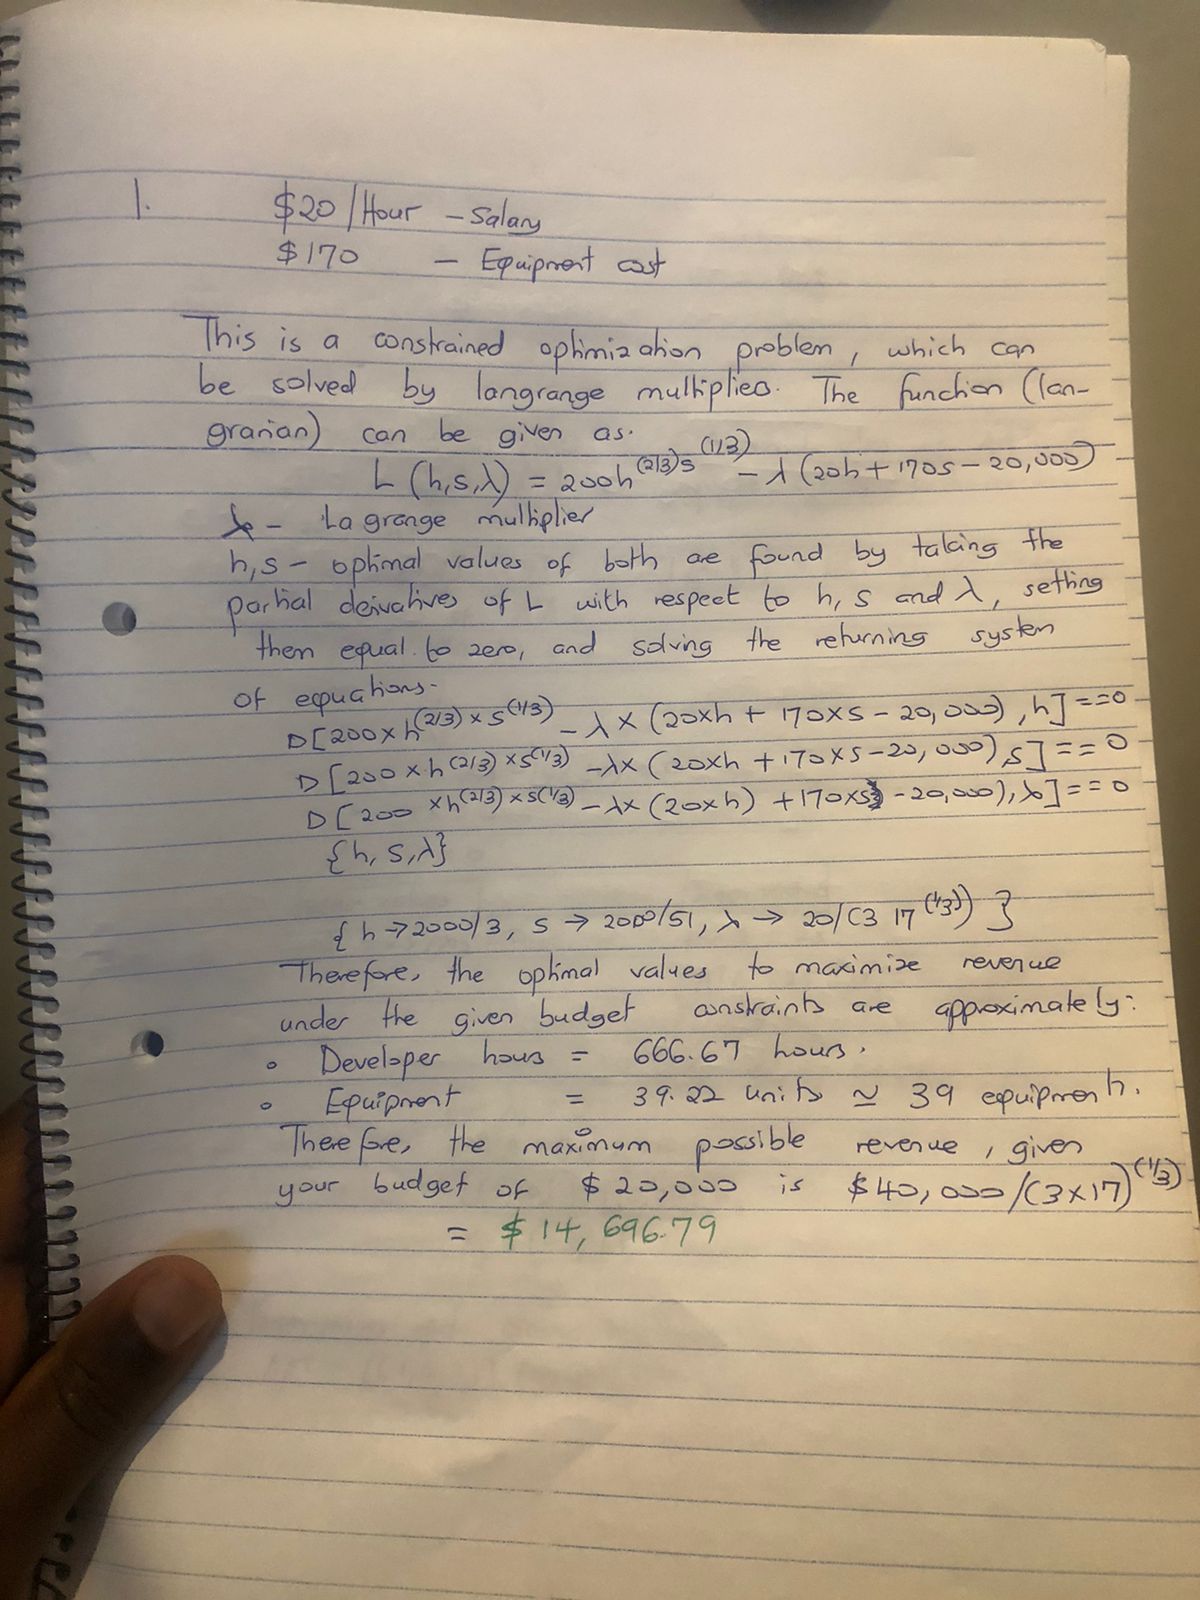 1. $20/Hour - Salary
$170 - Equipment cost
This is a constrained optimization problem, which can
be solved by langrange multiplies. The function (lan-
granian) can be given as.
L (h,s,λ) = 200h^(2/3)s^(1/3) - λ (20h + 170s - 20,000)
λ - Lagrange multiplier
h,s - optimal values of both are found by taking the
partial derivatives of L with respect to h, s and λ, setting
them equal to zero, and solving the returning system
of equations-
D[200×h^(2/3)×s^(1/3) - λ×(20×h + 170×s - 20,000), h] == 0
D[200×h^(2/3)×s^(1/3) - λ×(20×h + 170×s - 20,000), s] == 0
D[200×h^(2/3)×s(1/3) - λ×(20×h) + 170×s) - 20,000), λ] == 0
{h, s, λ}
{h → 2000/3, s → 2000/51, λ → 20/(3 17^(1/3))}
Therefore, the optimal values to maximize revenue
under the given budget constraints are approximately:
• Developer hours = 666.67 hours.
• Equipment = 39.22 units ≃ 39 equipment.
Therefore, the maximum possible revenue, given
your budget of $20,000 is $40,000/(3×17)^(1/3)
= $14,696.79